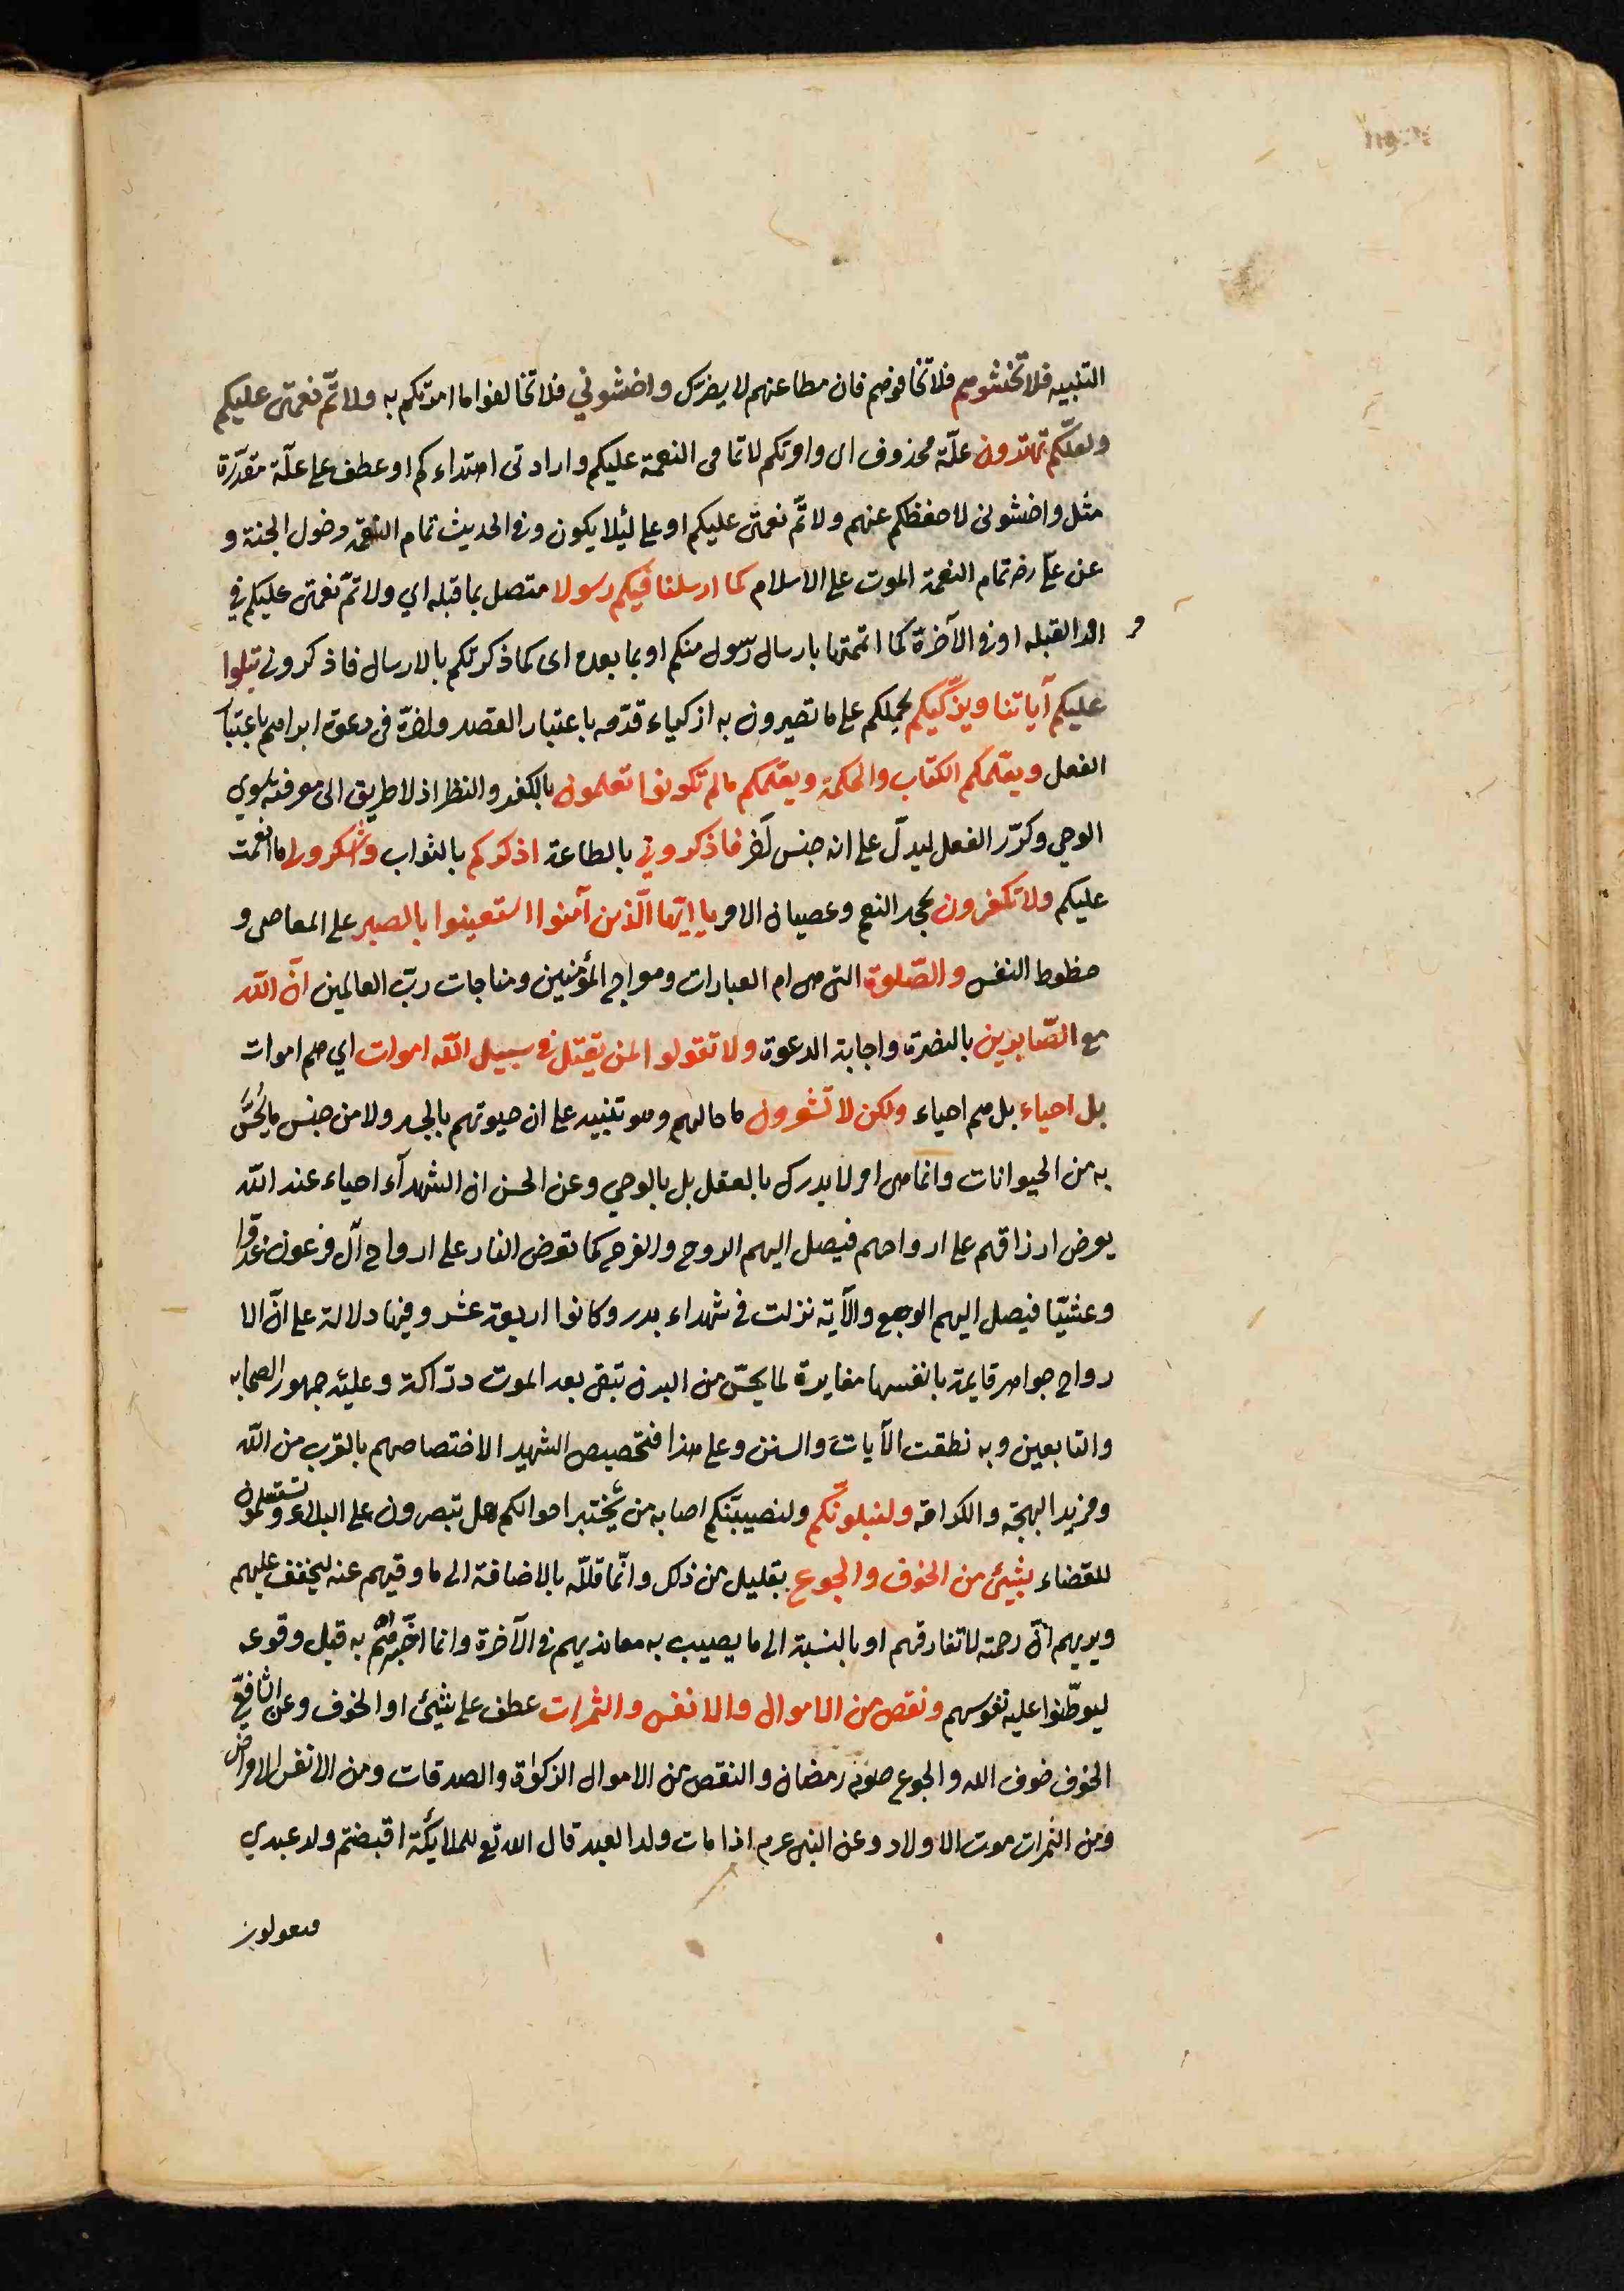 التنبيه فلا تخشوهم فلا تخافوهم فان مطاعنهم لا يضركم واخشوني فلا تخالفوا ما امرتكم به ولاتمّ نعمتى عليكم
ولعلّكم تهتدون علّة محذوف اى وامرتكم لاتمامى النعمة عليكم وارادتى اهتداءكم او عطف على علّة مقدّرة
مثل واخشونى لاحفظكم عنهم ولاتمّ نعمتى عليكم او على لئلا يكون وفى الحديث تمام النعمة دخول الجنة و
عن على رضه تمام النعمة الموت على الاسلام كما ارسلنا فيكم رسولا متصل بما قبله اي ولاتمّ نعمتى عليكم في
امر القبله او فى الآخرة كما اتممتها بارسال رسول منكم او بما بعده اى كما ذكرتكم بالارسال فاذكرونى يتلوا
عليكم آياتنا ويزكّيكم يحملكم على ما تصيرون به ازكياء قدّمه باعتبار القصد واخّره فى دعوة ابراهيم باعتبار
الفعل ويعلّمكم الكتاب والحكمة ويعلّمكم ما لم تكونوا تعلمون بالكفر والنظر اذ لا طريق الى معرفته سوي
الوحي وكرّر الفعل ليدلّ على انه جنس آخر فاذكروني بالطاعة اذكركم بالثواب واشكروا لى ما انعمت
عليكم ولا تكفرون بجحد النعم وعصيان الامر يا ايّها الّذين آمنوا استعينوا بالصبر على المعاصى و
حظوظ النفس والصّلوة التى هى ام العبادات ومعراج المؤمنين ومناجات ربّ العالمين انّ اللّه
مع الصّابرين بالنصرة واجابة الدعوة ولا تقولوا لمن يقتل فى سبيل اللّه اموات اي هم اموات
بل احياء بل هم احياء ولكن لا تشعرون ما حالهم وهو تنبيه على ان حيوتهم بالجسد ولا من جنس ما يُحَسُّ
به من الحيوانات وانما هى امر لا يدرك بالعقل بل بالوحي وعن الحسن ان الشهدآء احياء عند اللّه
يعرض ارزاقهم على ارواحهم فيصل اليهم الروح والفرح كما تعرض النار على ارواح آل فرعون غدوّا
وعشيّا فيصل اليهم الوجع والآية نزلت فى شهداء بدر وكانوا اربعة عشر وفيها دلالة على انّ الا
رواح جواهر قايمة بانفسها مغايرة لما يحسّ من البدن تبقى بعد الموت درّاكة وعليه جمهور الصحابه
والتابعين وبه نطقت الآيات والسنن وعلى هذا فتخصيص الشهيد لاختصاصهم بالقرب من اللّه
ومزيد البهجة والكرامة ولنبلونّكم ولنصيبنّكم اصابه من يختبر احوالكم هل تبصرون على البلاء وتستسلمون
للقضاء بشيئ من الخوف والجوع بقليل من ذلك وانّما قلّله بالاضافة الى ما وقيهم عنه ليخفف عليهم
ويريهم انّ رحمته لا تفارقهم او بالنسبة الى ما يصيب به معانديهم فى الآخرة وانما اخبرهم به قبل وقوعه
ليوطّنوا عليه نفوسهم ونقص من الاموال والانفس والثمرات عطف على شيئ او الخوف وعن الشافعيّ
الخوف خوف الله والجوع صوم رمضان والنقص من الاموال الزكوٰة والصدقات ومن الانفس الامراض
ومن الثمرات موت الاولاد وعن النبى عرم اذا مات ولد العبد قال الله تع للملايكة اقبضتم ولد عبدي
فيقولون